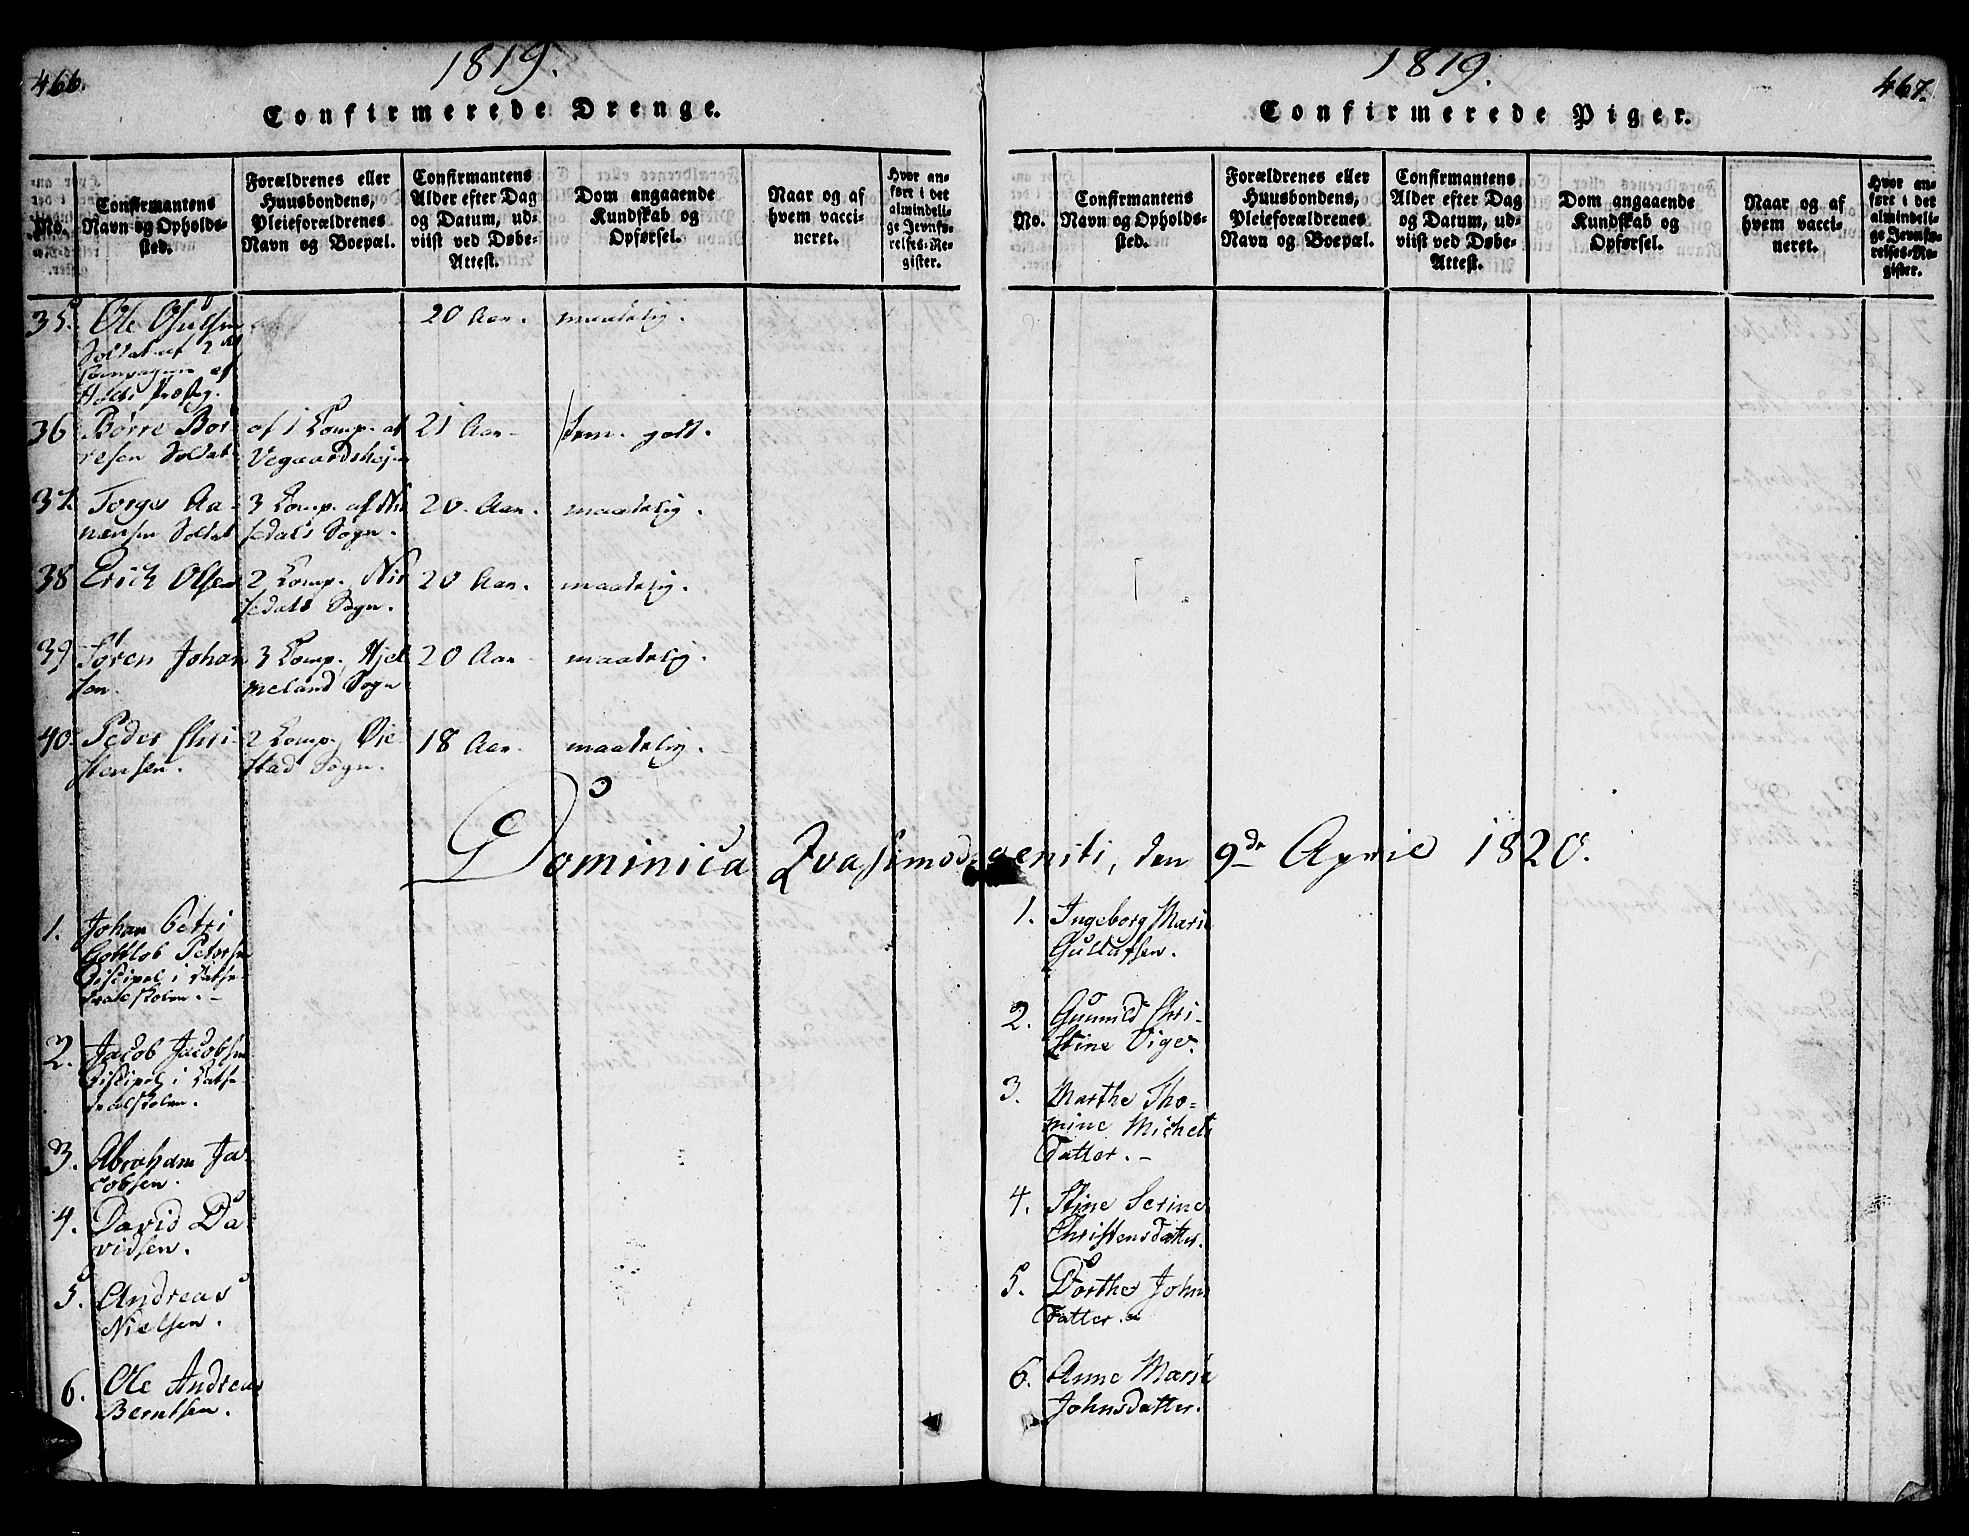 466.
1819.
Confirmerede Drenge.
No.
Confirmantens
Navn og Opholds-
sted.
Forældrenes eller
Huusbondens,
Pleieforældrenes
Navn og Boepæl.
Confirmantens
Alder efter Dag
og Datum, ud-
viist ved Døbe-
Attest.
Dom angaaende
Kundskab og
Opførsel.
Naar og af
hvem vacci-
neret.
Hvor an-
ført i det
almindeli-
ge Jevnfø-
relses-Re-
gister.
35. Ole 20 Aar. maadelig.
Soldat af 2det
Compagnie af
Holts Præsteg.
36 Børre Bør- af 1 Comp. af 21 Aar godt.
resen Soldat Vegaardshejen
37. Torges Aa- 3 Comp. af Nis 20 Aar. maadelig.
nensen Soldat sedals Sogn.
38 Erich Olsen 2 Comp. Nis 20 Aar. maadelig.
sedals Sogn.
39 Søren Johan 3 Comp. Hjel 20 Aar maadelig.
sen. meland Sogn
40. Peder Chri- 2 Comp. Øje 18 Aar. maadelig.
stensen. stad Sogn.
Dominica Qvasimodogeniti, den 9de April 1820.
1. Johan Petri
Gottlob Petersen
Discipel i Cathe-
dralskolen.
2. Jacob Jacobsen
Discipel i Cathe-
dralskolen.
3. Abraham Ja-
cobsen.
4. David Da
vidsen.
5. Andreas
Nielsen.
6. Ole Andreas
Berntsen.
1819.
467.
Confirmerede Piger.
No.
Confirmantens
Navn og Opholds-
sted.
Forældrenes eller
Huusbondens,
Pleieforældrenes
Navn og Boepæl.
Confirmantens
Alder efter Dag
og Datum, ud-
viist ved Døbe-
Attest.
Dom angaaende
Kundskab og
Opførsel.
Naar og af
hvem vacci-
neret.
Hvor an-
ført i det
almindeli-
ge Jevnfø-
relses-Re-
gister.
1. Ingeborg Marie
Guldafsen.
2. Gunnild Chri-
stine Viger.
3. Marthe Tho-
mine Michels
Datter.
4. Stine Serine
Christensdatter.
5. Dorthe Johns
Datter.
6. Anne Marie
Johnsdatter.